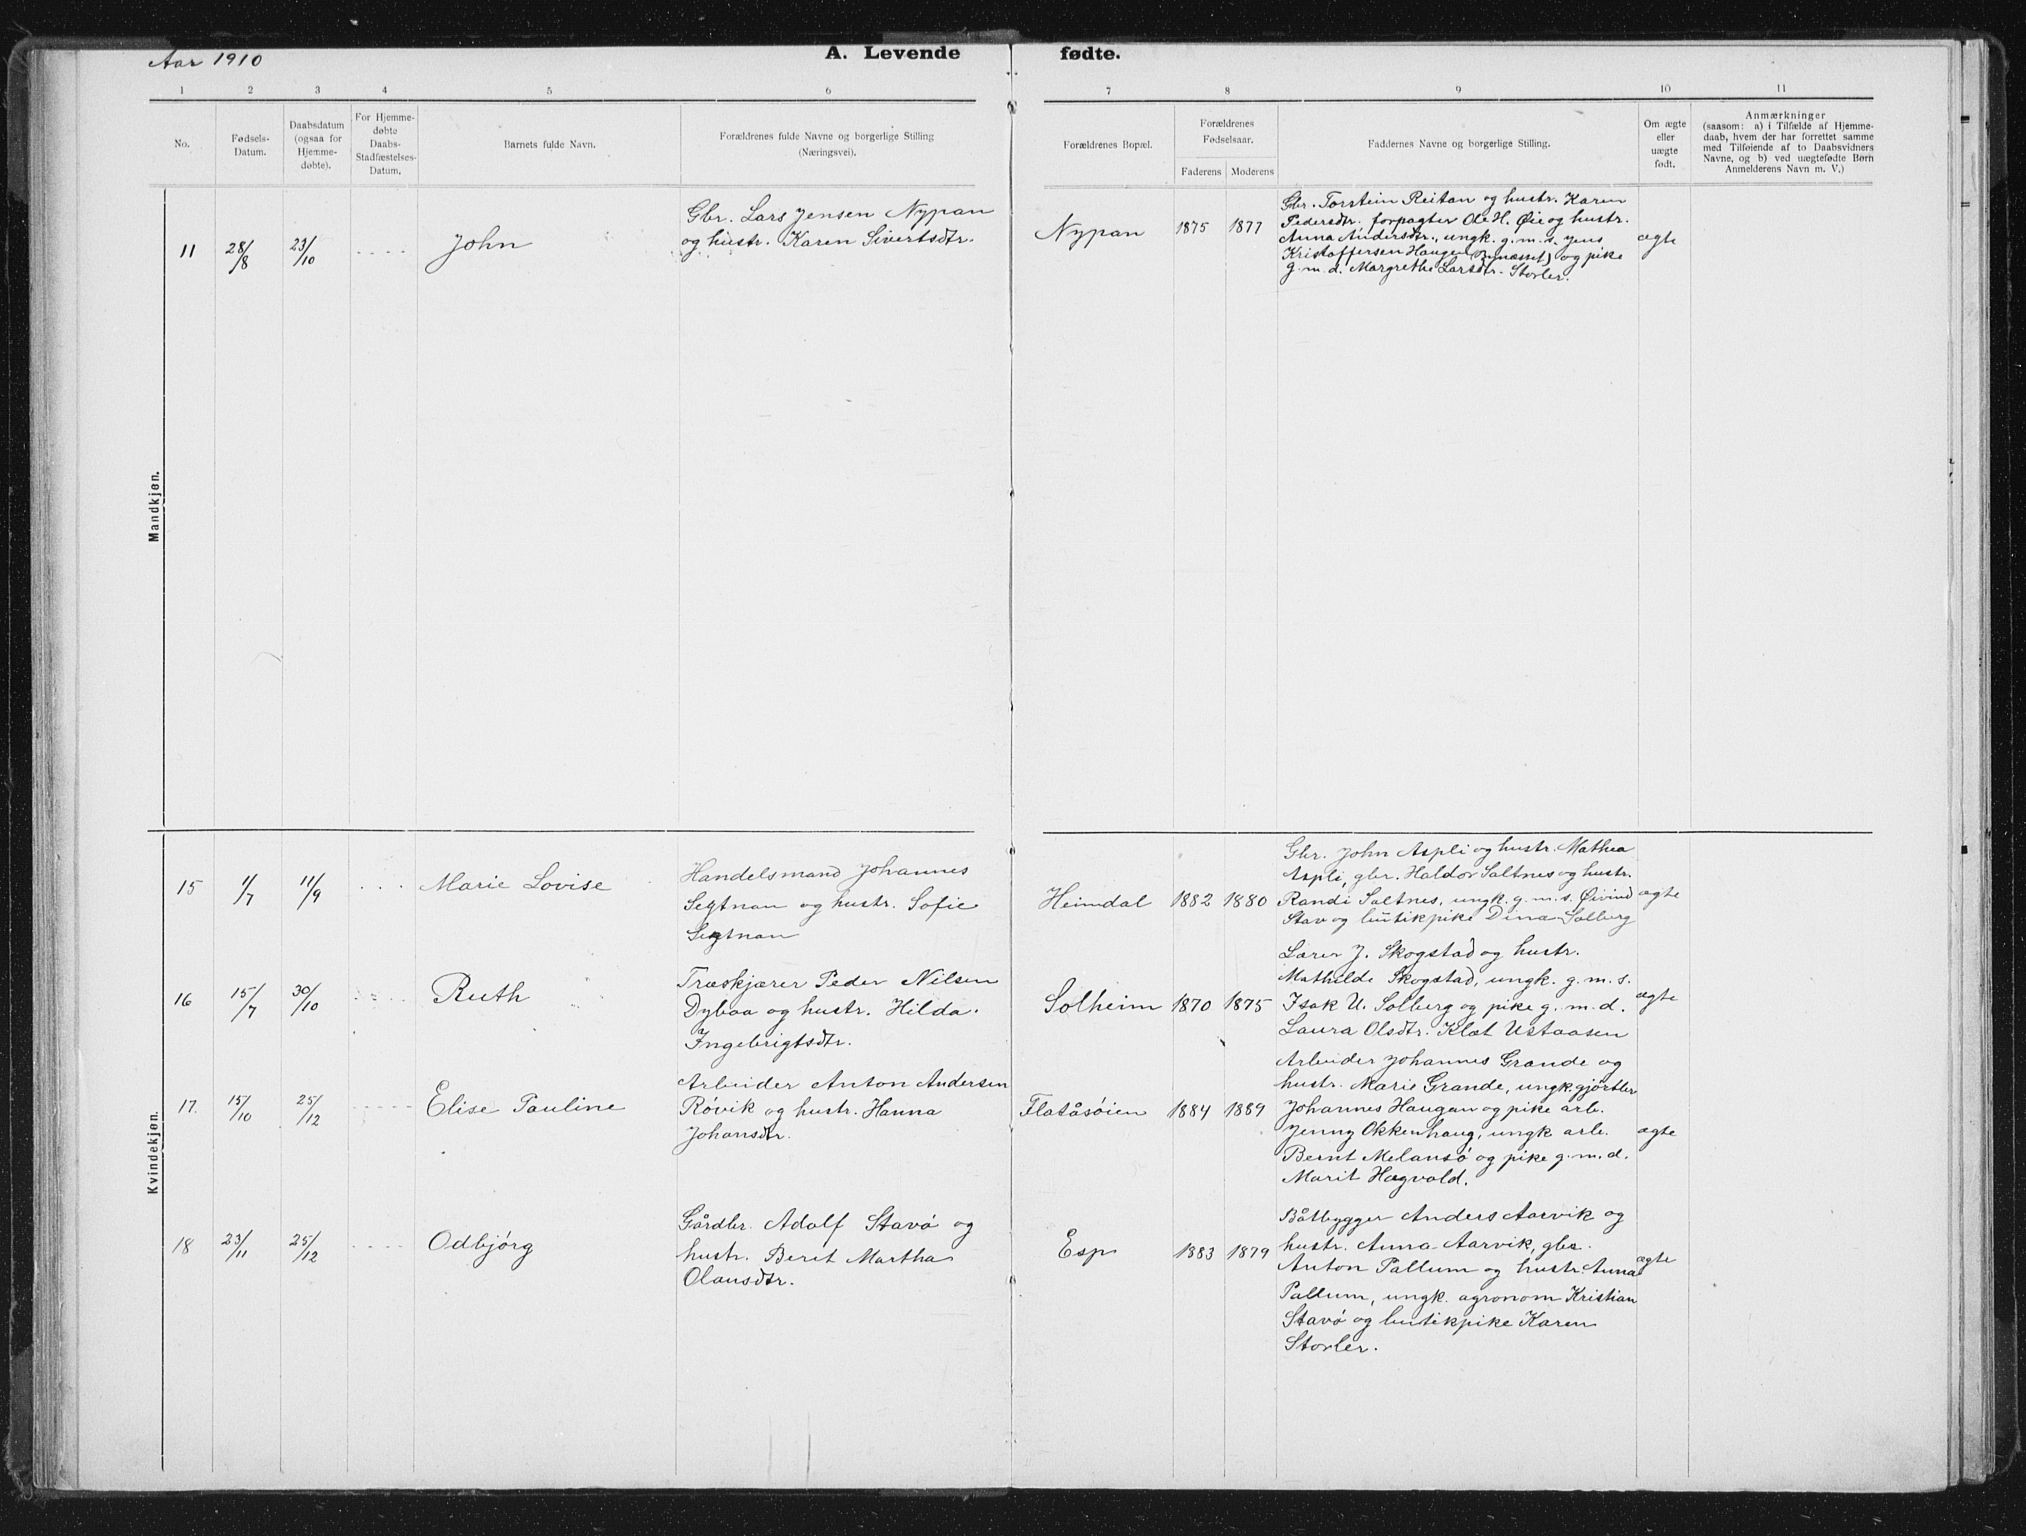 Aar 1910
A. Levende fødte.
1 2 3 4 5 6 7 8 9 10 11
No.
Fødsels-
Datum.
Daabsdatum
(ogsaa for
Hjemme-
døbte).
For Hjemme-
døbte
Daabs-
Stadfæstelses-
Datum.
Barnets fulde Navn.
Forældrenes fulde Navne og borgerlige Stilling
(Næringsvei).
Forældrenes Bopæl.
Forældrenes
Fødselsaar.
Faderens Moderens
Faddernes Navne og borgerlige Stilling.
Om ægte
eller
uægte
født.
Anmærkninger
(saasom: a) i Tilfælde af Hjemme-
daab, hvem der har forrettet samme
med Tilføiende af to Daabsvidners
Navne, og b) ved uægtefødte Børn
Anmelderens Navn m. V.)
Mandkjøn.
11 28/8 23/10 John
Gbr. Lars Jensen Nypan
og hustr. Karen Sivertsdtr.
Nypan 1875 1877
Gbr. Torstein Reitan og hustr. Karen
Pedersdtr. forpagter Ole H. Øie og hustr.
Anna Andersdtr., ungk. g.m.s. Jens
Kristoffersen Haugen (Bynæsset) og pike
g.m.d. Margrethe Larsdtr. Storler.
ægte
Kvindekjøn.
15 11/7 11/9 Marie Lovise
Handelsmand Johannes
Segtnan og hustr. Sofie
Segtnan
Heimdal 1882 1880
Gbr. John Aspli og hustr. Mathea
Aspli, gbr. Haldor Saltnes og hustr.
Randi Saltnes, ungk. g.m.s. Øivind
Stav og butikpike Dina Solberg
ægte
16 15/7 30/10 Ruth
Træskjærer Peder Nilsen
Dybaa og hustr. Hilda
Ingebrigtsdtr.
Solheim 1870 1875
Lærer J. Skogstad og hustr.
Mathilde Skogstad, ungk. g.m.s.
Isak U. Solberg og pike g.m.d.
Laura Olsdtr. Klæt Ustaasen
ægte
17. 15/10 25/12 Elise Pauline
Arbeider Anton Andersen
Røvik og hustr. Hanna
Johansdtr.
Flatåsøien 1884 1889
Arbeider Johannes Grande og
hustr. Marie Grande, ungk. gjørtler
Johannes Haugan og pike arb.
Jenny Okkenhaug, ungk arb.
Bernt Melansø og pike g.m.d.
Marit Hægvold.
ægte
18 23/11 25/12 Odbjørg
Gårdbr. Adolf Stavø og
hustr. Berit Martha
Olausdtr.
Esp 1883 1879
Båtbygger Anders Aarvik og
hustr. Anna Aarvik, gbr.
Anton Pallum og hustr. Anna
Pallum, ungk. agronom Kristian
Stavø og butikpike Karen
Storler.
ægte